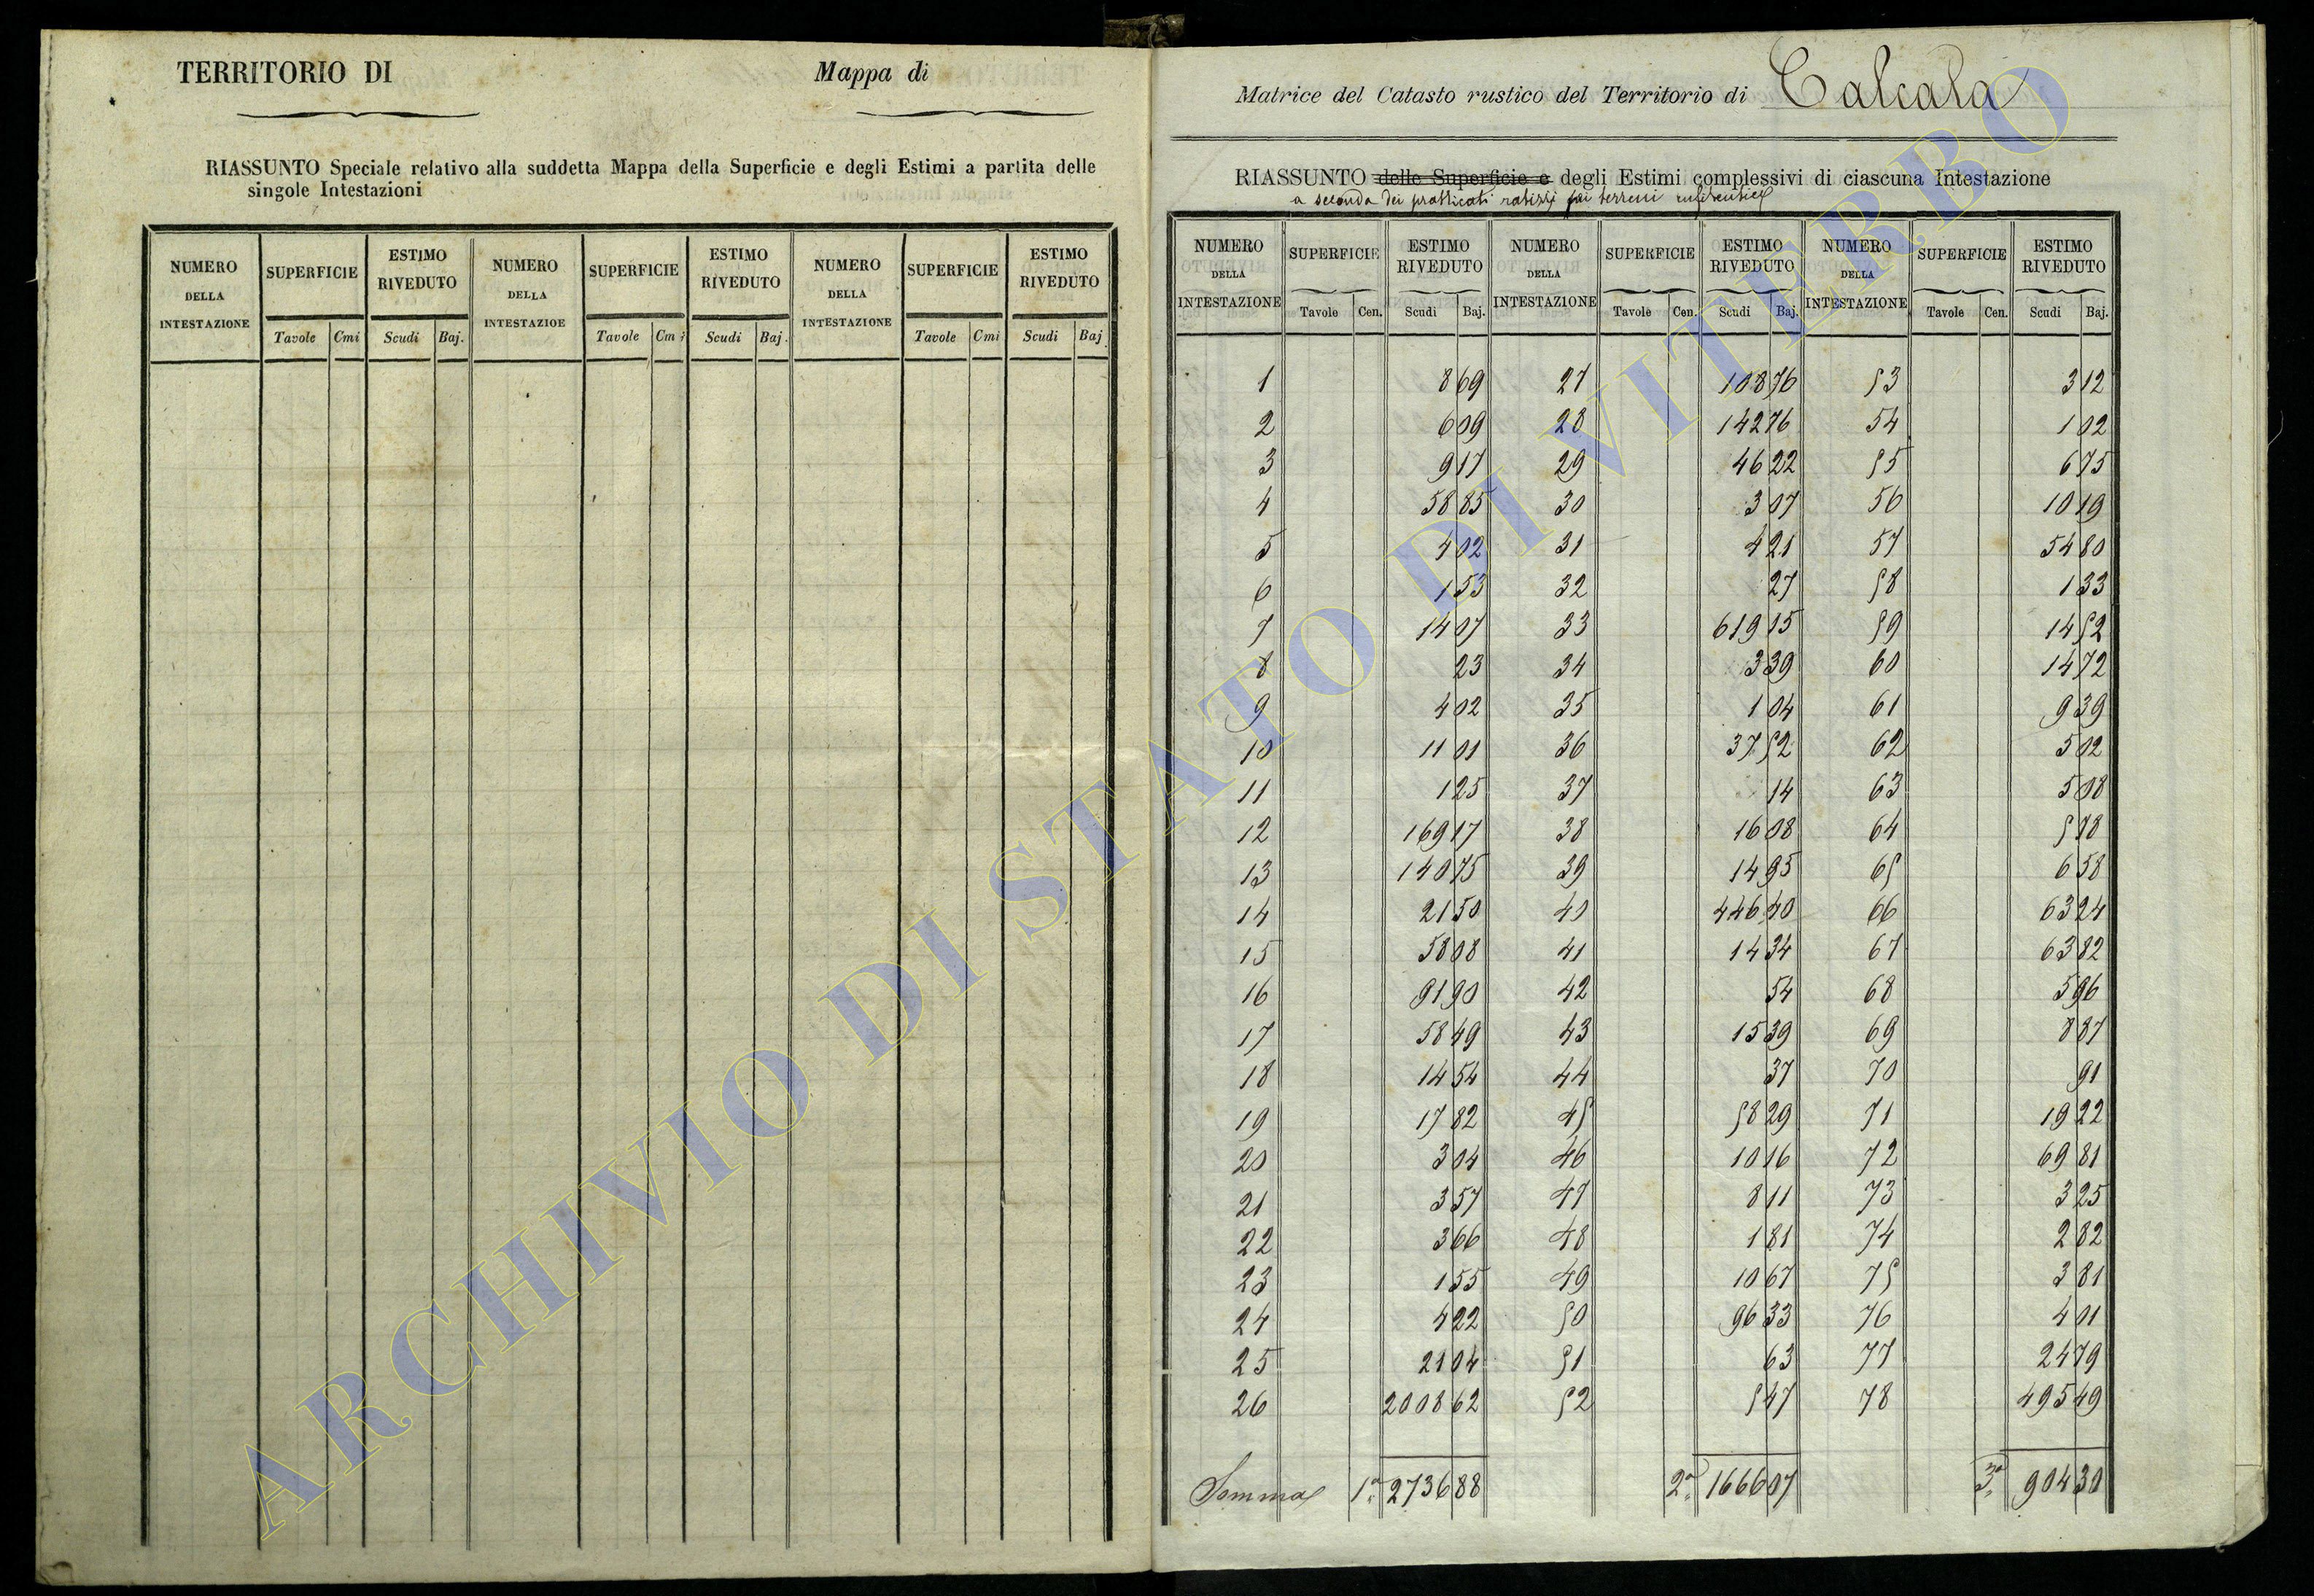 TERRITORIO DI
Mappa di
RIASSUNTO Speciale relativo alla suddetta Mappa della Superficie e degli Estimi a partita delle
singole Intestazioni
NUMERO DELLA INTESTAZIONE SUPERFICIE ESTIMO RIVEDUTO NUMERO DELLA INTESTAZIOE SUPERFICIE ESTIMO RIVEDUTO NUMERO DELLA INTESTAZIONE SUPERFICIE ESTIMO RIVEDUTO
Tavole Cmi Scudi Baj. Tavole Cmi Scudi Baj. Tavole Cmi Scudi Baj
Matrice del Catasto rustico del Territorio di Calcata
RIASSUNTO delle Superficie e degli Estimi complessivi di ciascuna Intestazione
a seconda dei pratticati ratizzi sui terreni
NUMERO DELLA INTESTAZIONE SUPERFICIE ESTIMO RIVEDUTO NUMERO DELLA INTESTAZIONE SUPERFICIE ESTIMO RIVEDUTO NUMERO DELLA INTESTAZIONE SUPERFICIE ESTIMO RIVEDUTO
Tavole Cen. Scudi Baj. Tavole Cen. Scudi Baj. Tavole Cen. Scudi Baj.
1 8 69 27 108 76 53 3 12
2 6 09 28 142 76 54 1 02
3 9 17 29 46 22 55 6 75
4 58 85 30 3 07 56 10 19
5 4 02 31 4 21 57 54 80
6 1 53 32 27 58 1 33
7 14 07 33 619 15 59 14 52
8 23 34 3 39 60 14 72
9 4 02 35 1 04 61 9 39
10 11 01 36 37 52 62 5 02
11 1 25 37 14 63 5 08
12 169 17 38 16 08 64 5 78
13 140 75 39 14 95 65 6 58
14 21 50 40 446 40 66 63 24
15 58 08 41 14 34 67 63 82
16 91 90 42 54 68 5 96
17 58 49 43 15 39 69 8 87
18 14 54 44 37 70 91
19 17 82 45 58 29 71 19 22
20 3 04 46 10 16 72 69 81
21 3 57 47 8 11 73 3 25
22 3 66 48 1 81 74 2 82
23 1 55 49 10 67 75 3 81
24 4 22 50 96 33 76 4 01
25 21 04 51 63 77 24 79
26 2008 62 52 5 47 78 495 49
Somma 1a 2736 88 2a 1666 07 3a 904 30
ARCHIVIO DI STATO DI VITERBO